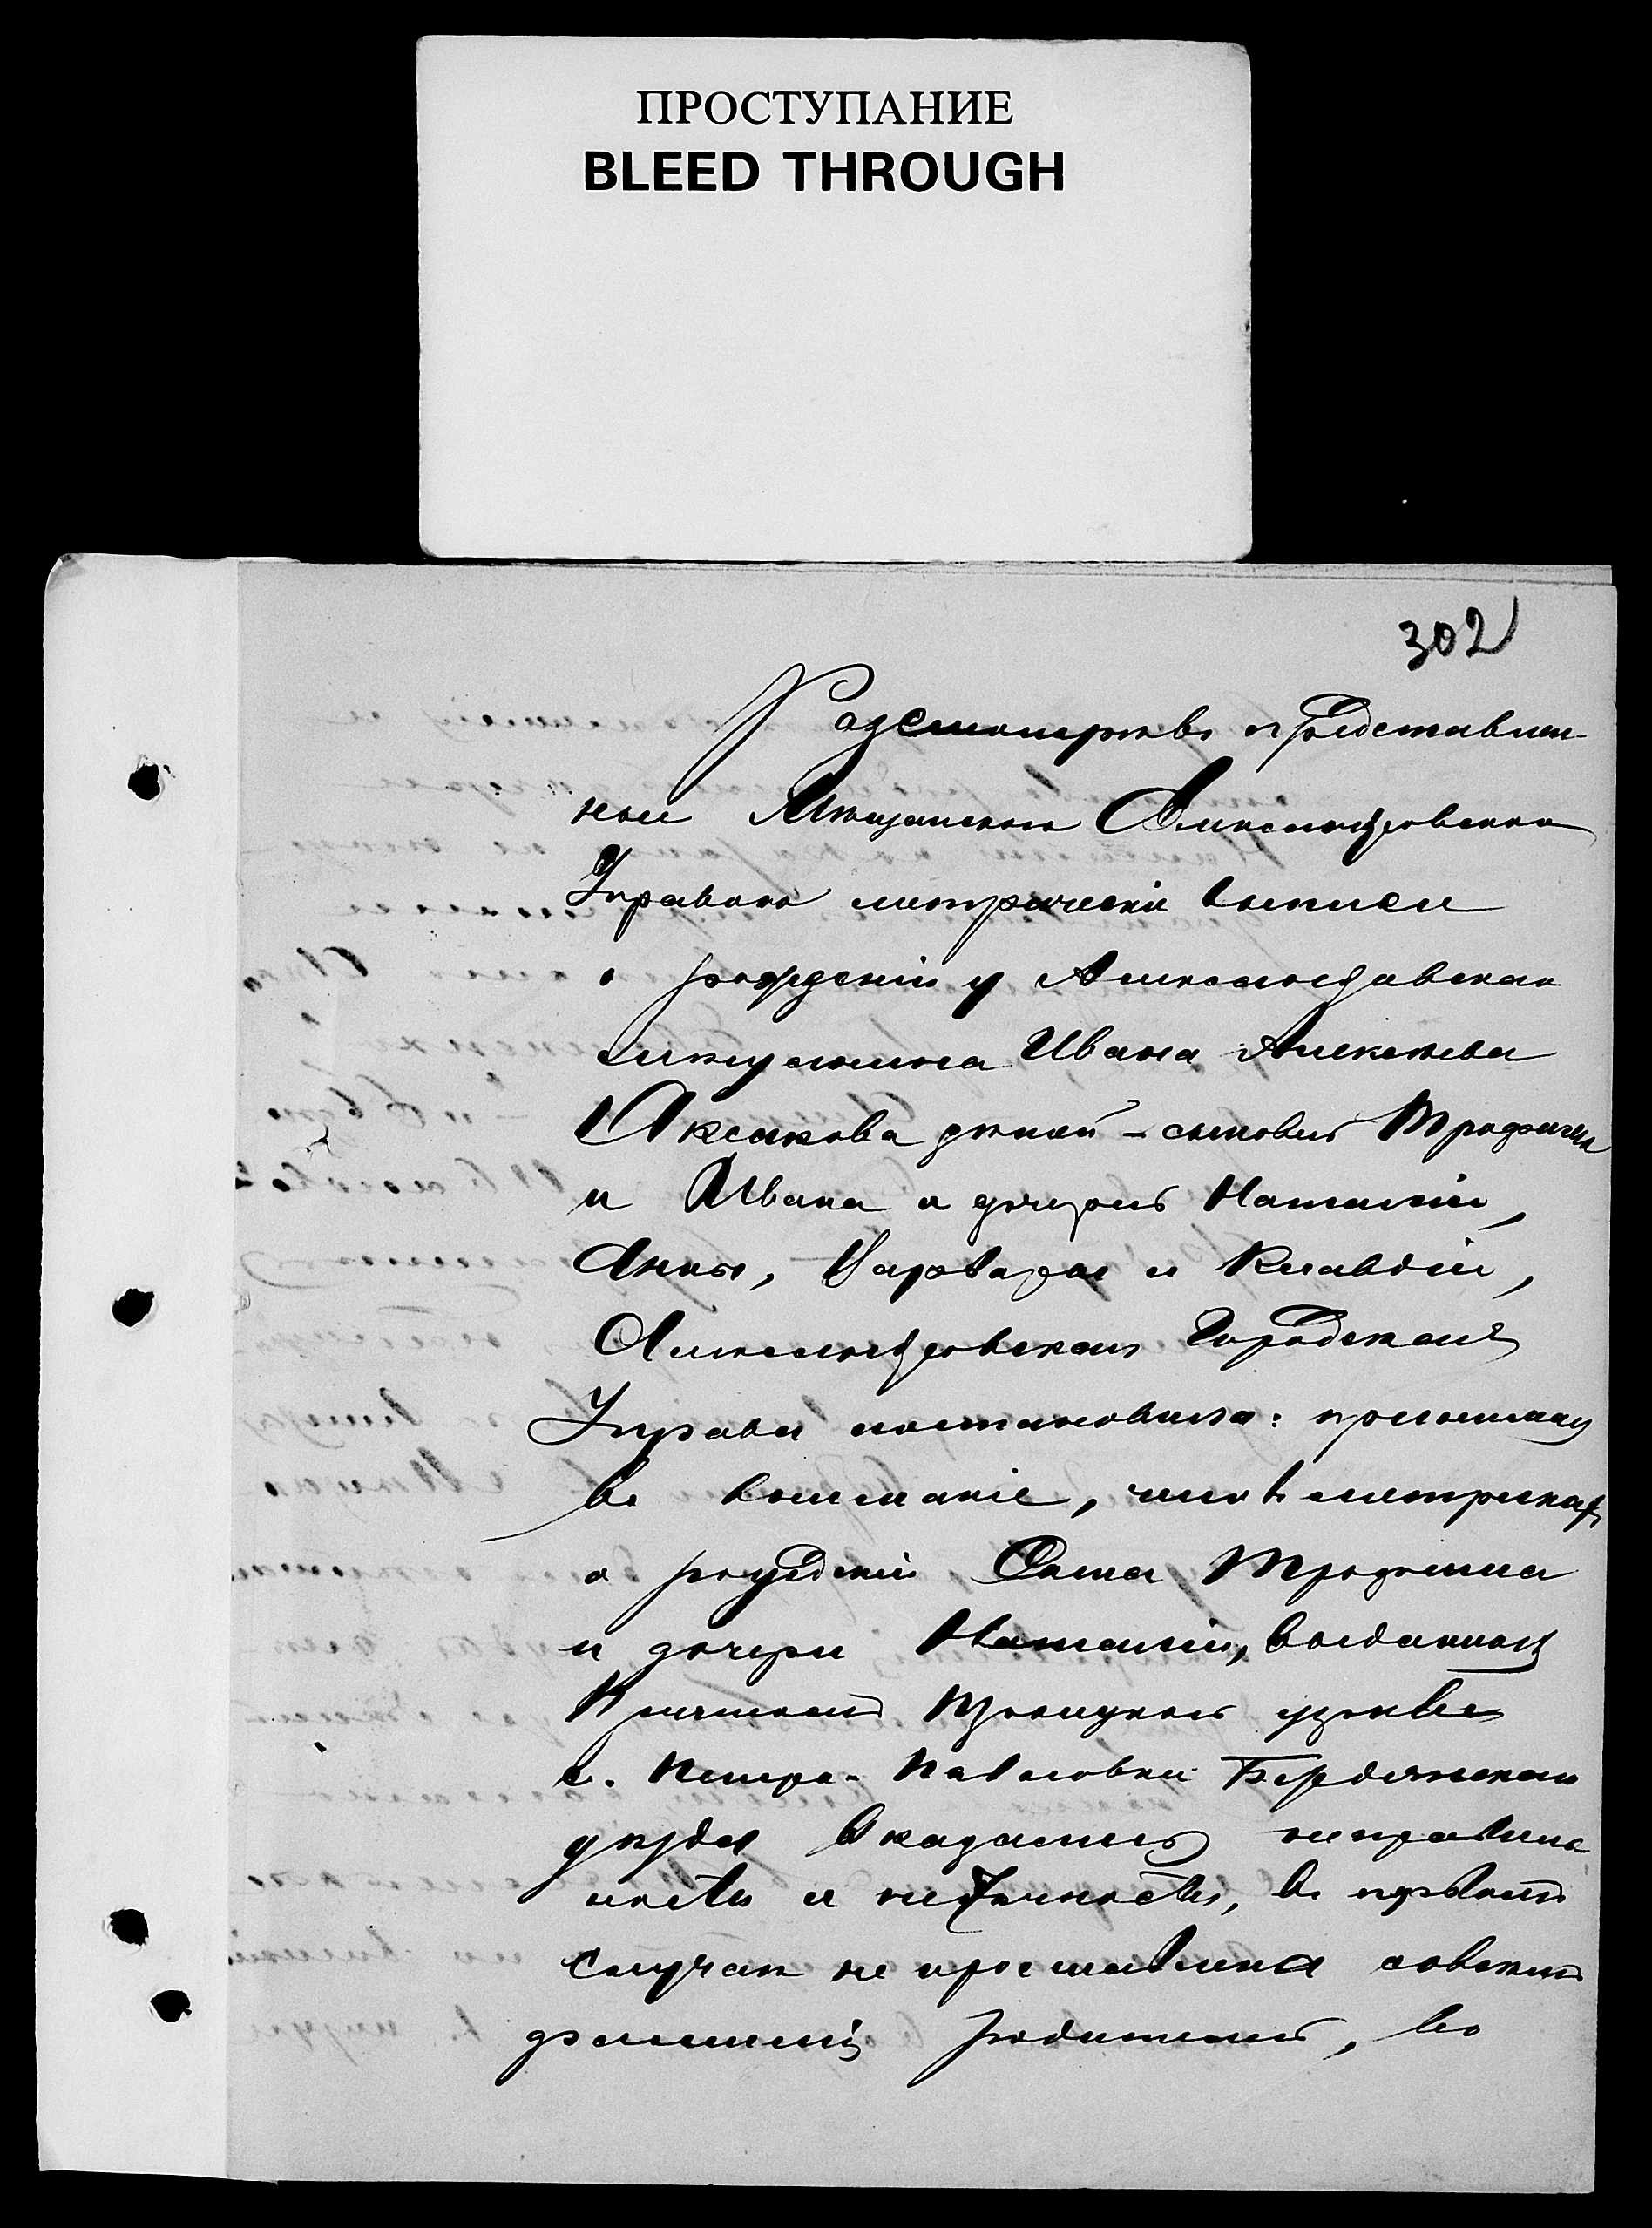 ПРОСТУПАНИЕ
BLEED THROUGH
302
Разсмотревъ представлен-
ныя Мещанскою Александровскою
Управою метрическія выписи
о рожденіи у Александровскаго
мещанина Ивана Алексеева
Аксакова детей - сыновей Трофима
и Ивана и дочерей Наталіи,
Анны, Варвары и Клавдіи,
Александровская Городская
Управа постановила: принимая
во вниманіе, что въ метрикахъ
о рожденіи сына Трофима
и дочери Наталіи, выданныхъ
Причтомъ Троицкой церкви
с. Петро-Павловки Бердянскаго
уезда оказались неправиль
ности и неточности, въ первомъ
случае не проставлена совсемъ
фамилія родителей, во